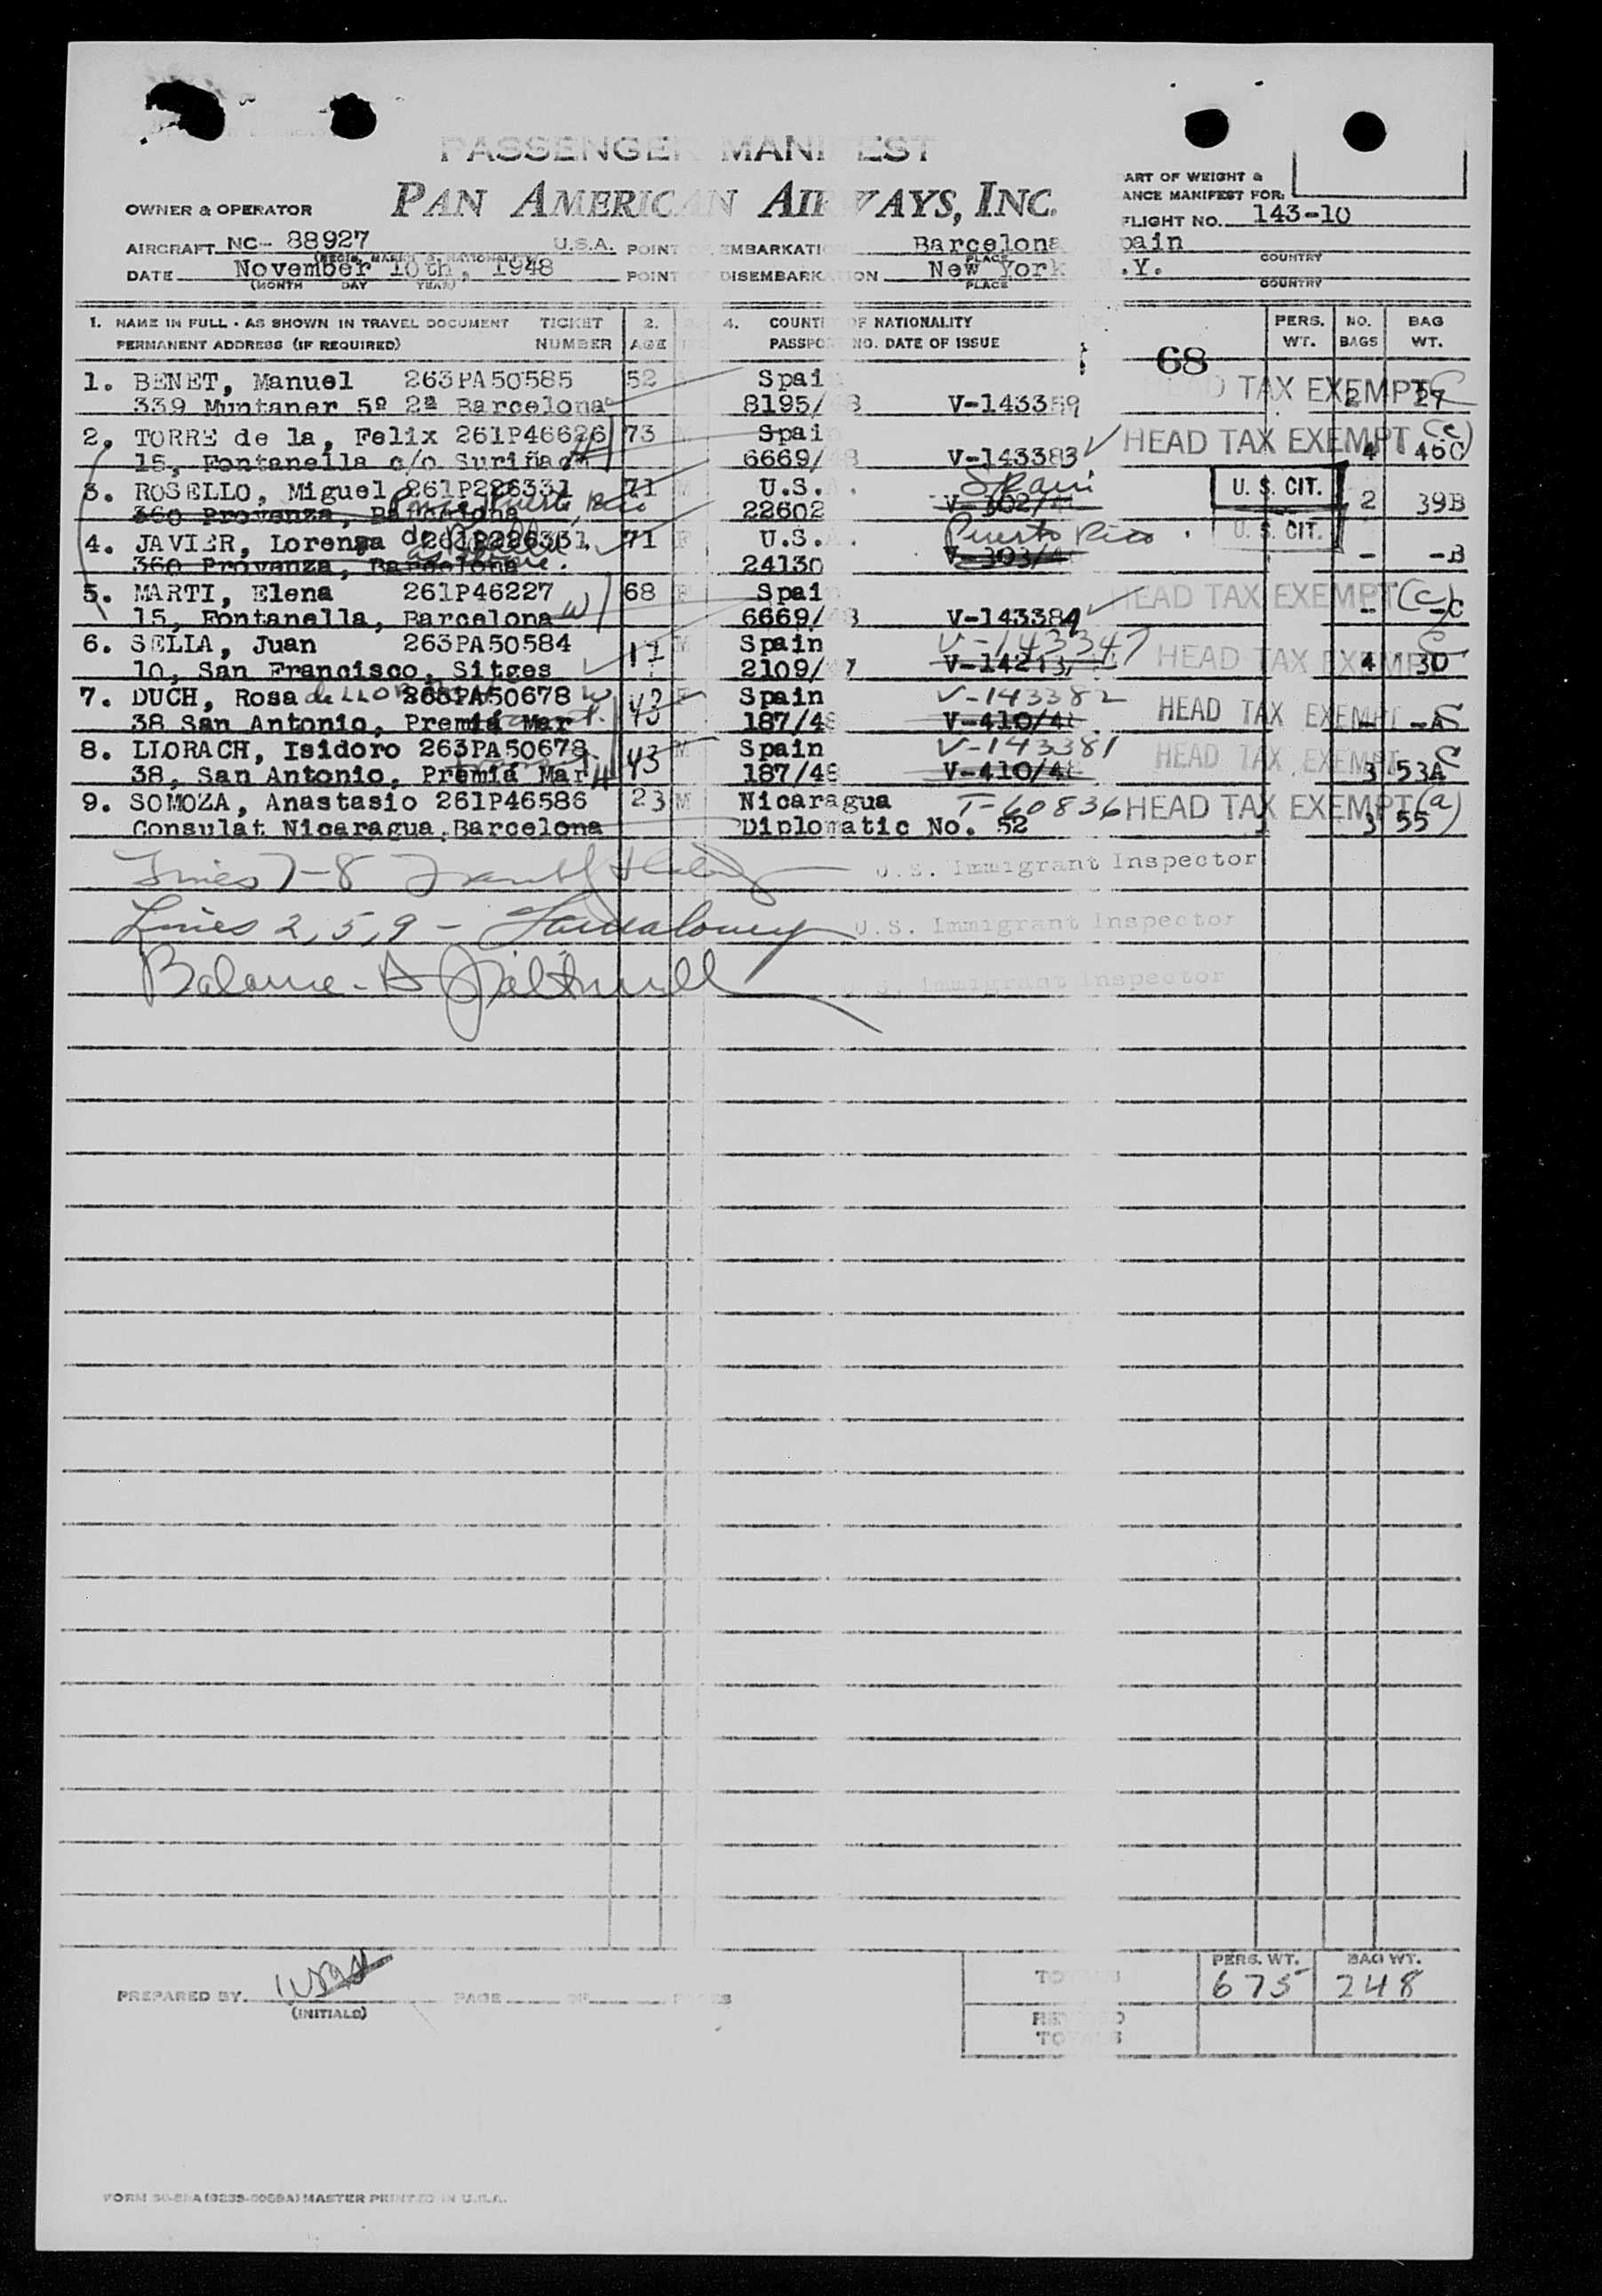 PASSENGER MANIFEST
PAN AMERICAN AIRWAYS, INC.
OWNER & OPERATOR
ART OF WEIGHT &
ANCE MANIFEST FOR:
FLIGHT NO. 143-10
AIRCRAFT NC- 88927 U.S.A. POINT OF EMBARKATION Barcelona Spain
(REGIS. MARKS & NATIONALITY) PLACE COUNTRY
DATE November 10th, 1948 POINT OF DISEMBARKATION New York N.Y.
(MONTH DAY YEAR) PLACE COUNTRY
1. NAME IN FULL - AS SHOWN IN TRAVEL DOCUMENT TICKET 2. 4. COUNTRY OF NATIONALITY PERS. NO. BAG
PERMANENT ADDRESS (IF REQUIRED) NUMBER AGE PASSPORT NO. DATE OF ISSUE WT. BAGS WT.
68
1. BENET, Manuel 263PA50585 52 Spain HEAD TAX EXEMPT C
339 Muntaner 5º 2ª Barcelona 8195/48 V-143359 2 27
2. TORRE de la, Felix 261P46626 73 Spain HEAD TAX EXEMPT (c)
15, Fontanella c/o Suriñach 6669/48 V-143383 4 40C
3. ROSELLO, Miguel 261P226331 71 M U.S.A. Spain U. S. CIT.
360 Provenza, Barcelona Ponce, Puerto Rico 22602 V-302/4 2 39B
4. JAVIER, Lorenza de 261P226331 71 F U.S.A. Puerto Rico U. S. CIT.
360 Provenza, Barcelona as above. 24130 V-303/4 - -B
5. MARTI, Elena 261P46227 68 F Spain HEAD TAX EXEMPT (c)
15, Fontanella, Barcelona W 6669/48 V-143384 - -C
6. SELLA, Juan 263PA50584 17 M Spain V-143347 HEAD TAX EXEMPT C
10, San Francisco, Sitges 2109/47 V-14213/ 4 30
7. DUCH, Rosa de LLORACH 263PA50678 W 43 F Spain V-143382 HEAD TAX EXEMPT C
38 San Antonio, Premiá Mar 187/48 V-410/48 - -A
8. LLORACH, Isidoro 263PA50678 43 M Spain V-143381 HEAD TAX EXEMPT C
38, San Antonio, Premiá Mar 187/48 V-410/48 3 53A
9. SOMOZA, Anastasio 261P46586 23 M Nicaragua T-60836 HEAD TAX EXEMPT (a)
Consulat Nicaragua, Barcelona Diplomatic No. 52 3 55
Lines 7-8 U.S. Immigrant Inspector
Lines 2, 5, 9 - U.S. Immigrant Inspector
Balance - U.S. Immigrant Inspector
PERS. WT. BAG WT.
TOTALS 675 248
PREPARED BY PAGE OF PAGES
(INITIALS)
REVISED
TOTALS
MASTER PRINTED IN U.S.A.